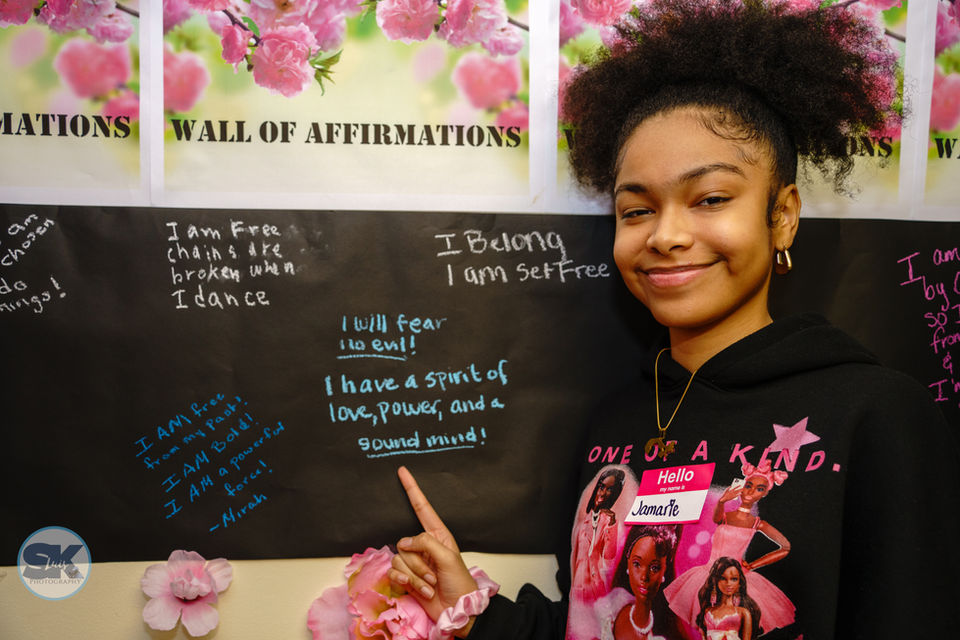 MATIONS
WALL OF AFFIRMATIONS
NS
W
I am
chosen
do
things!
I am Free
chains are
broken when
I dance
I Belong
I am set Free
I will fear
no evil!
I have a spirit of
love, power, and a
sound mind!
I AM free
from my past!
I AM Bold!
I AM a powerful
force!
-Mirah
I am
by
so I
from
&
I'm
ONE OF A KIND.
Hello
my name is
Jamarie
SK
Luis
PHOTOGRAPHY